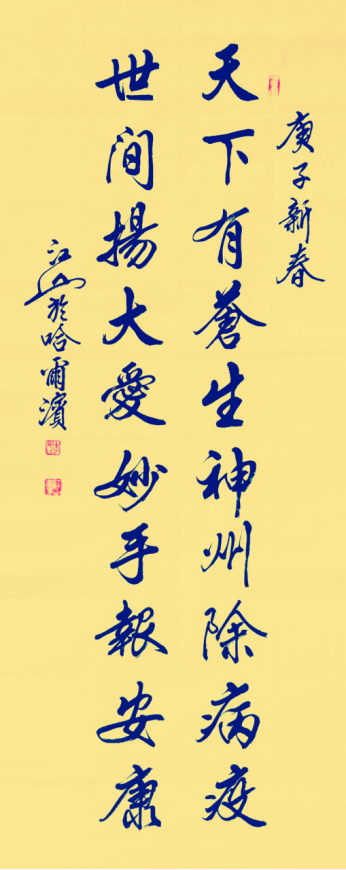 庚子新春
天下有蒼生神州除病疫
世间揚大愛妙手報安康
江山於哈爾濱